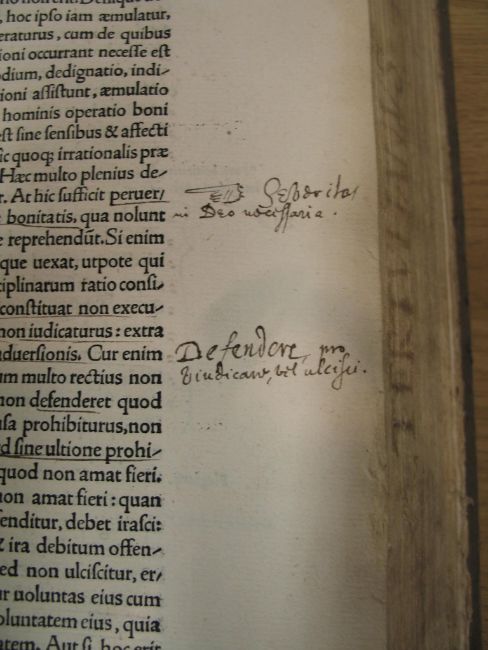 , hoc ipso iam æmulatur,
eraturus, cum de quibus
ioni occurrant necesse est
odium, dedignatio, indi-
ioni assistunt, æmulatio
hominis operatio boni
est sine sensibus & affecti
ic quoq; irrationalis præ
Hæc multo plenius de-
r. At hic sufficit peruer-
bonitatis, qua nolunt
e reprehendūt. Si enim
que uexat, utpote qui
ciplinarum ratio consi-
constituat non execu-
non iudicaturus: extra
aduersionis. Cur enim
um multo rectius non
non defenderet quod
usa prohibiturus, non
d sine ultione prohi-
quod non amat fieri.
non amat fieri: quan
fenditur, debet irasci:
& ira debitum offen-
ed non ulciscitur, er-
ur uoluntas eius cum
oluntatem eius, quia
atem. Aut si hoc erit
Seueritas
in Deo necessaria.
Defendere, pro
vindicare, vel ulcisci.